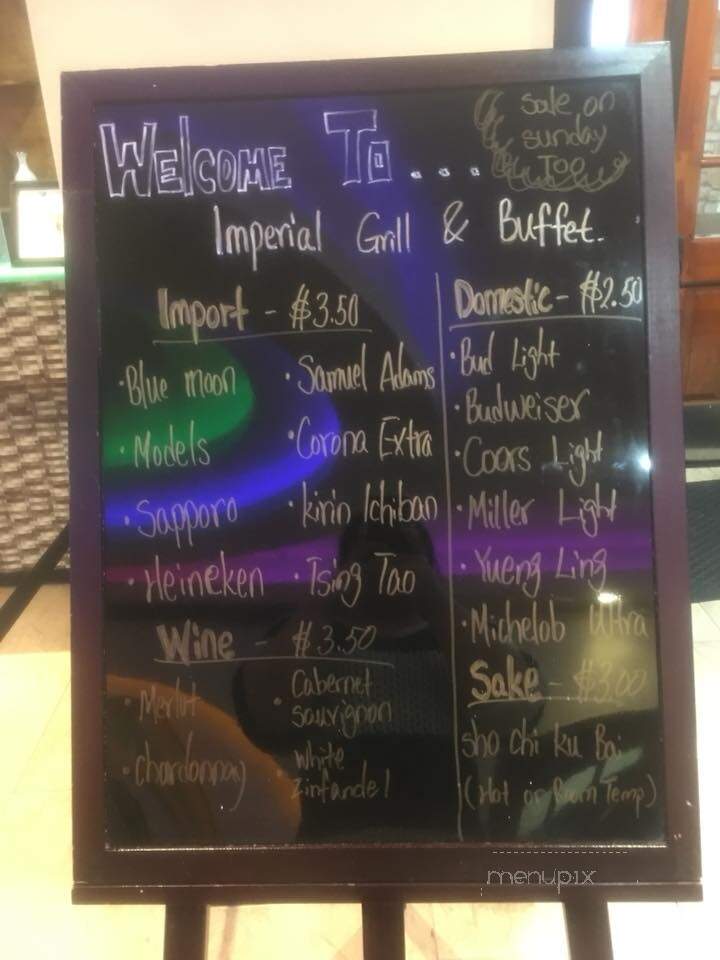 Welcome To...
sale on
sunday
Too
Imperial Grill & Buffet.
Import - $3.50
• Blue moon
• Samuel Adams
• Models
• Corona Extra
• Sapporo
• Kirin Ichiban
• Heineken
• Tsing Tao
Wine - $3.50
• Merlot
• Cabernet
sauvignon
• Chardonnay
• White
Zinfandel
Domestic - $2.50
• Bud Light
• Budweiser
• Coors Light
• Miller Light
• Yueng Ling
• Michelob Ultra
Sake - $3.00
sho chi ku Bai
(Hot or Room Temp)
menupix